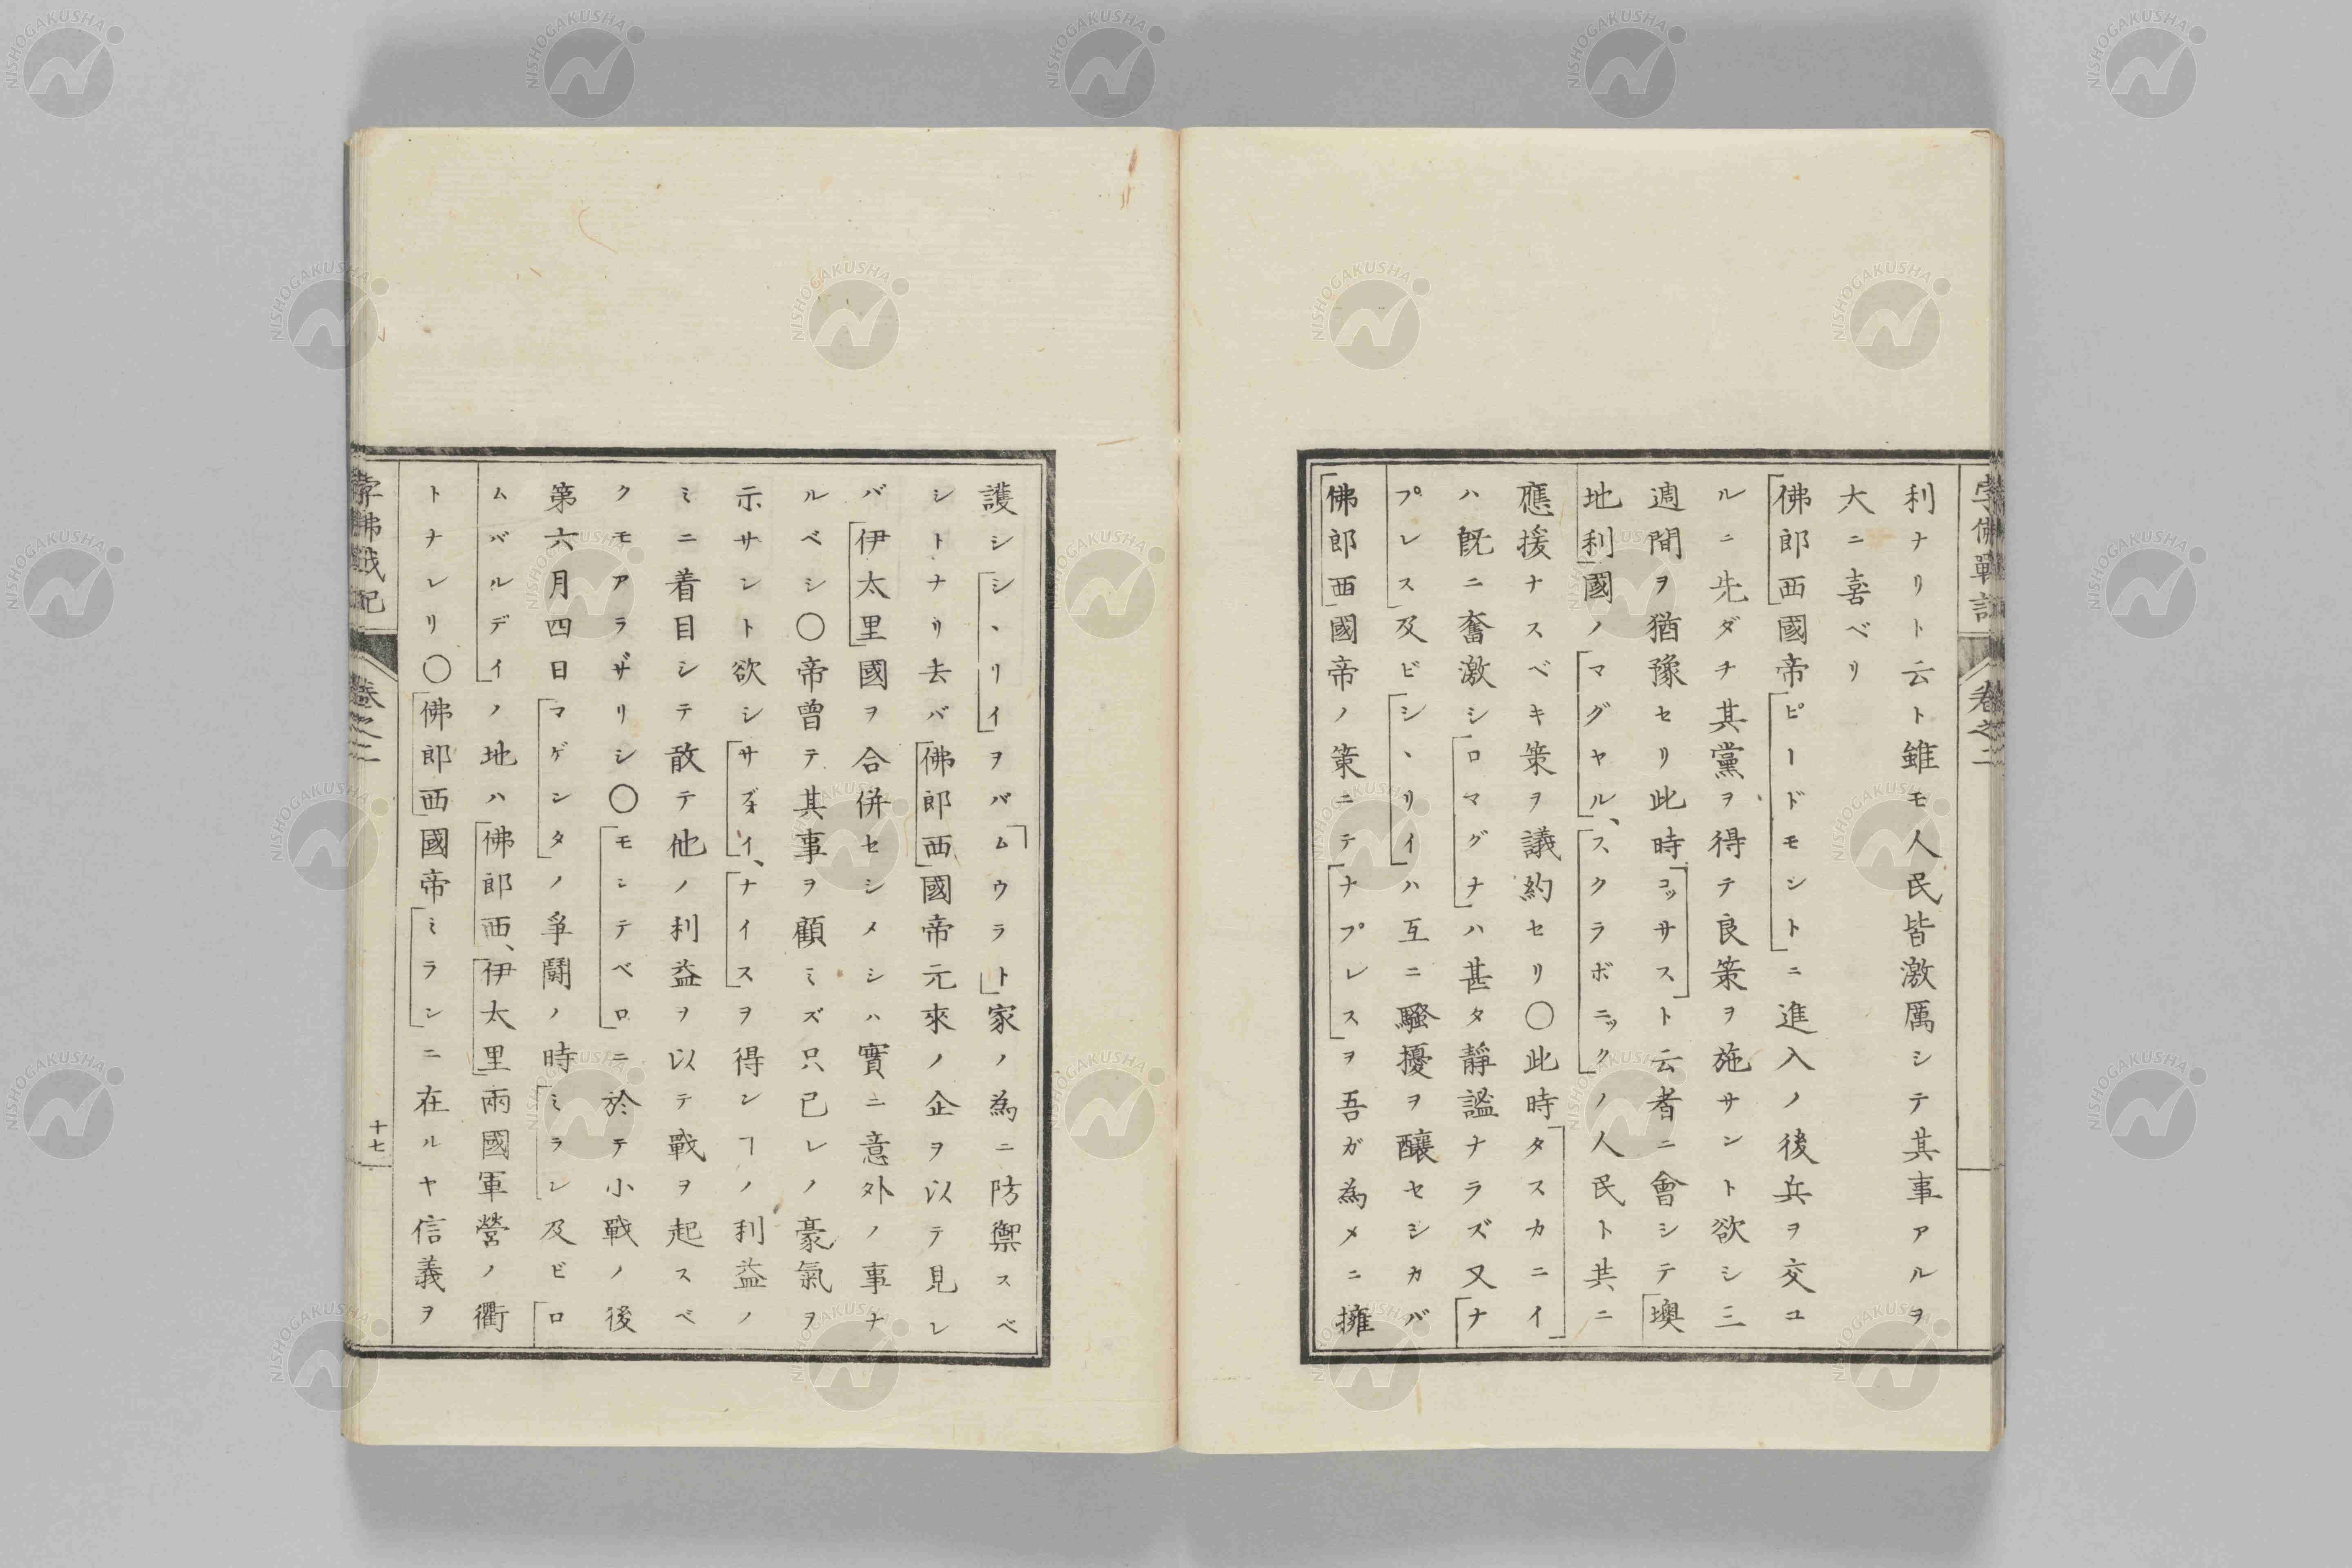 孛佛戰記 卷之二
利ナリト云ト雖モ人民皆激厲シテ其事アルヲ
大ニ喜ベリ
佛郎西國帝ピードモントニ進入ノ後兵ヲ交ユ
ルニ先ダチ其黨ヲ得テ良策ヲ施サント欲シ三
週間ヲ猶豫セリ此時コッサスト云者ニ會シテ墺
地利國ノマグヤル、スクラボニックノ人民ト共ニ
應援ナスベキ策ヲ議約セリ〇此時タスカニイ
ハ既ニ奮激シロマグナハ甚タ靜謐ナラズ又ナ
プレス及ビシヽリイハ互ニ騷擾ヲ釀セシカバ
佛郎西國帝ノ策ニテナプレスヲ吾ガ為メニ擁
護シシヽリイヲバムウラト家ノ為ニ防禦スベ
シトナリ去バ佛郎西國帝元來ノ企ヲ以テ見レ
バ伊太里國ヲ合併セシメシハ實ニ意外ノ事ナ
ルベシ〇帝曾テ其事ヲ顧ミズ只己レノ豪氣ヲ
示サント欲シサヴォイ、ナイスヲ得ンヿノ利益ノ
ミニ着目シテ敢テ他ノ利益ヲ以テ戰ヲ起スベ
クモアラザリシ〇モンテベロニ於テ小戰ノ後
第六月四日マゲンタノ爭鬪ノ時ミラン及ビロ
ムバルデイノ地ハ佛郎西、伊太里兩國軍營ノ衢
トナレリ〇佛郎西國帝ミランニ在ルヤ信義ヲ
孛佛戰記 卷之二 十七
NISHOGAKUSHA